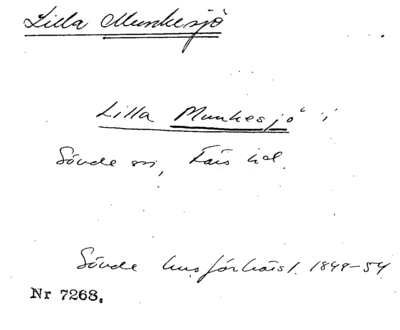 Lilla Munkesjö
Lilla Munkesjö i
Sövde sn, Färs hd.
Sövde husförhörsl. 1849-54
Nr 7268.